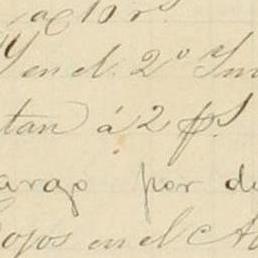 á 10 rs
Y en el 2º Im
tan á 2 ps
argo por de
ojos en el A